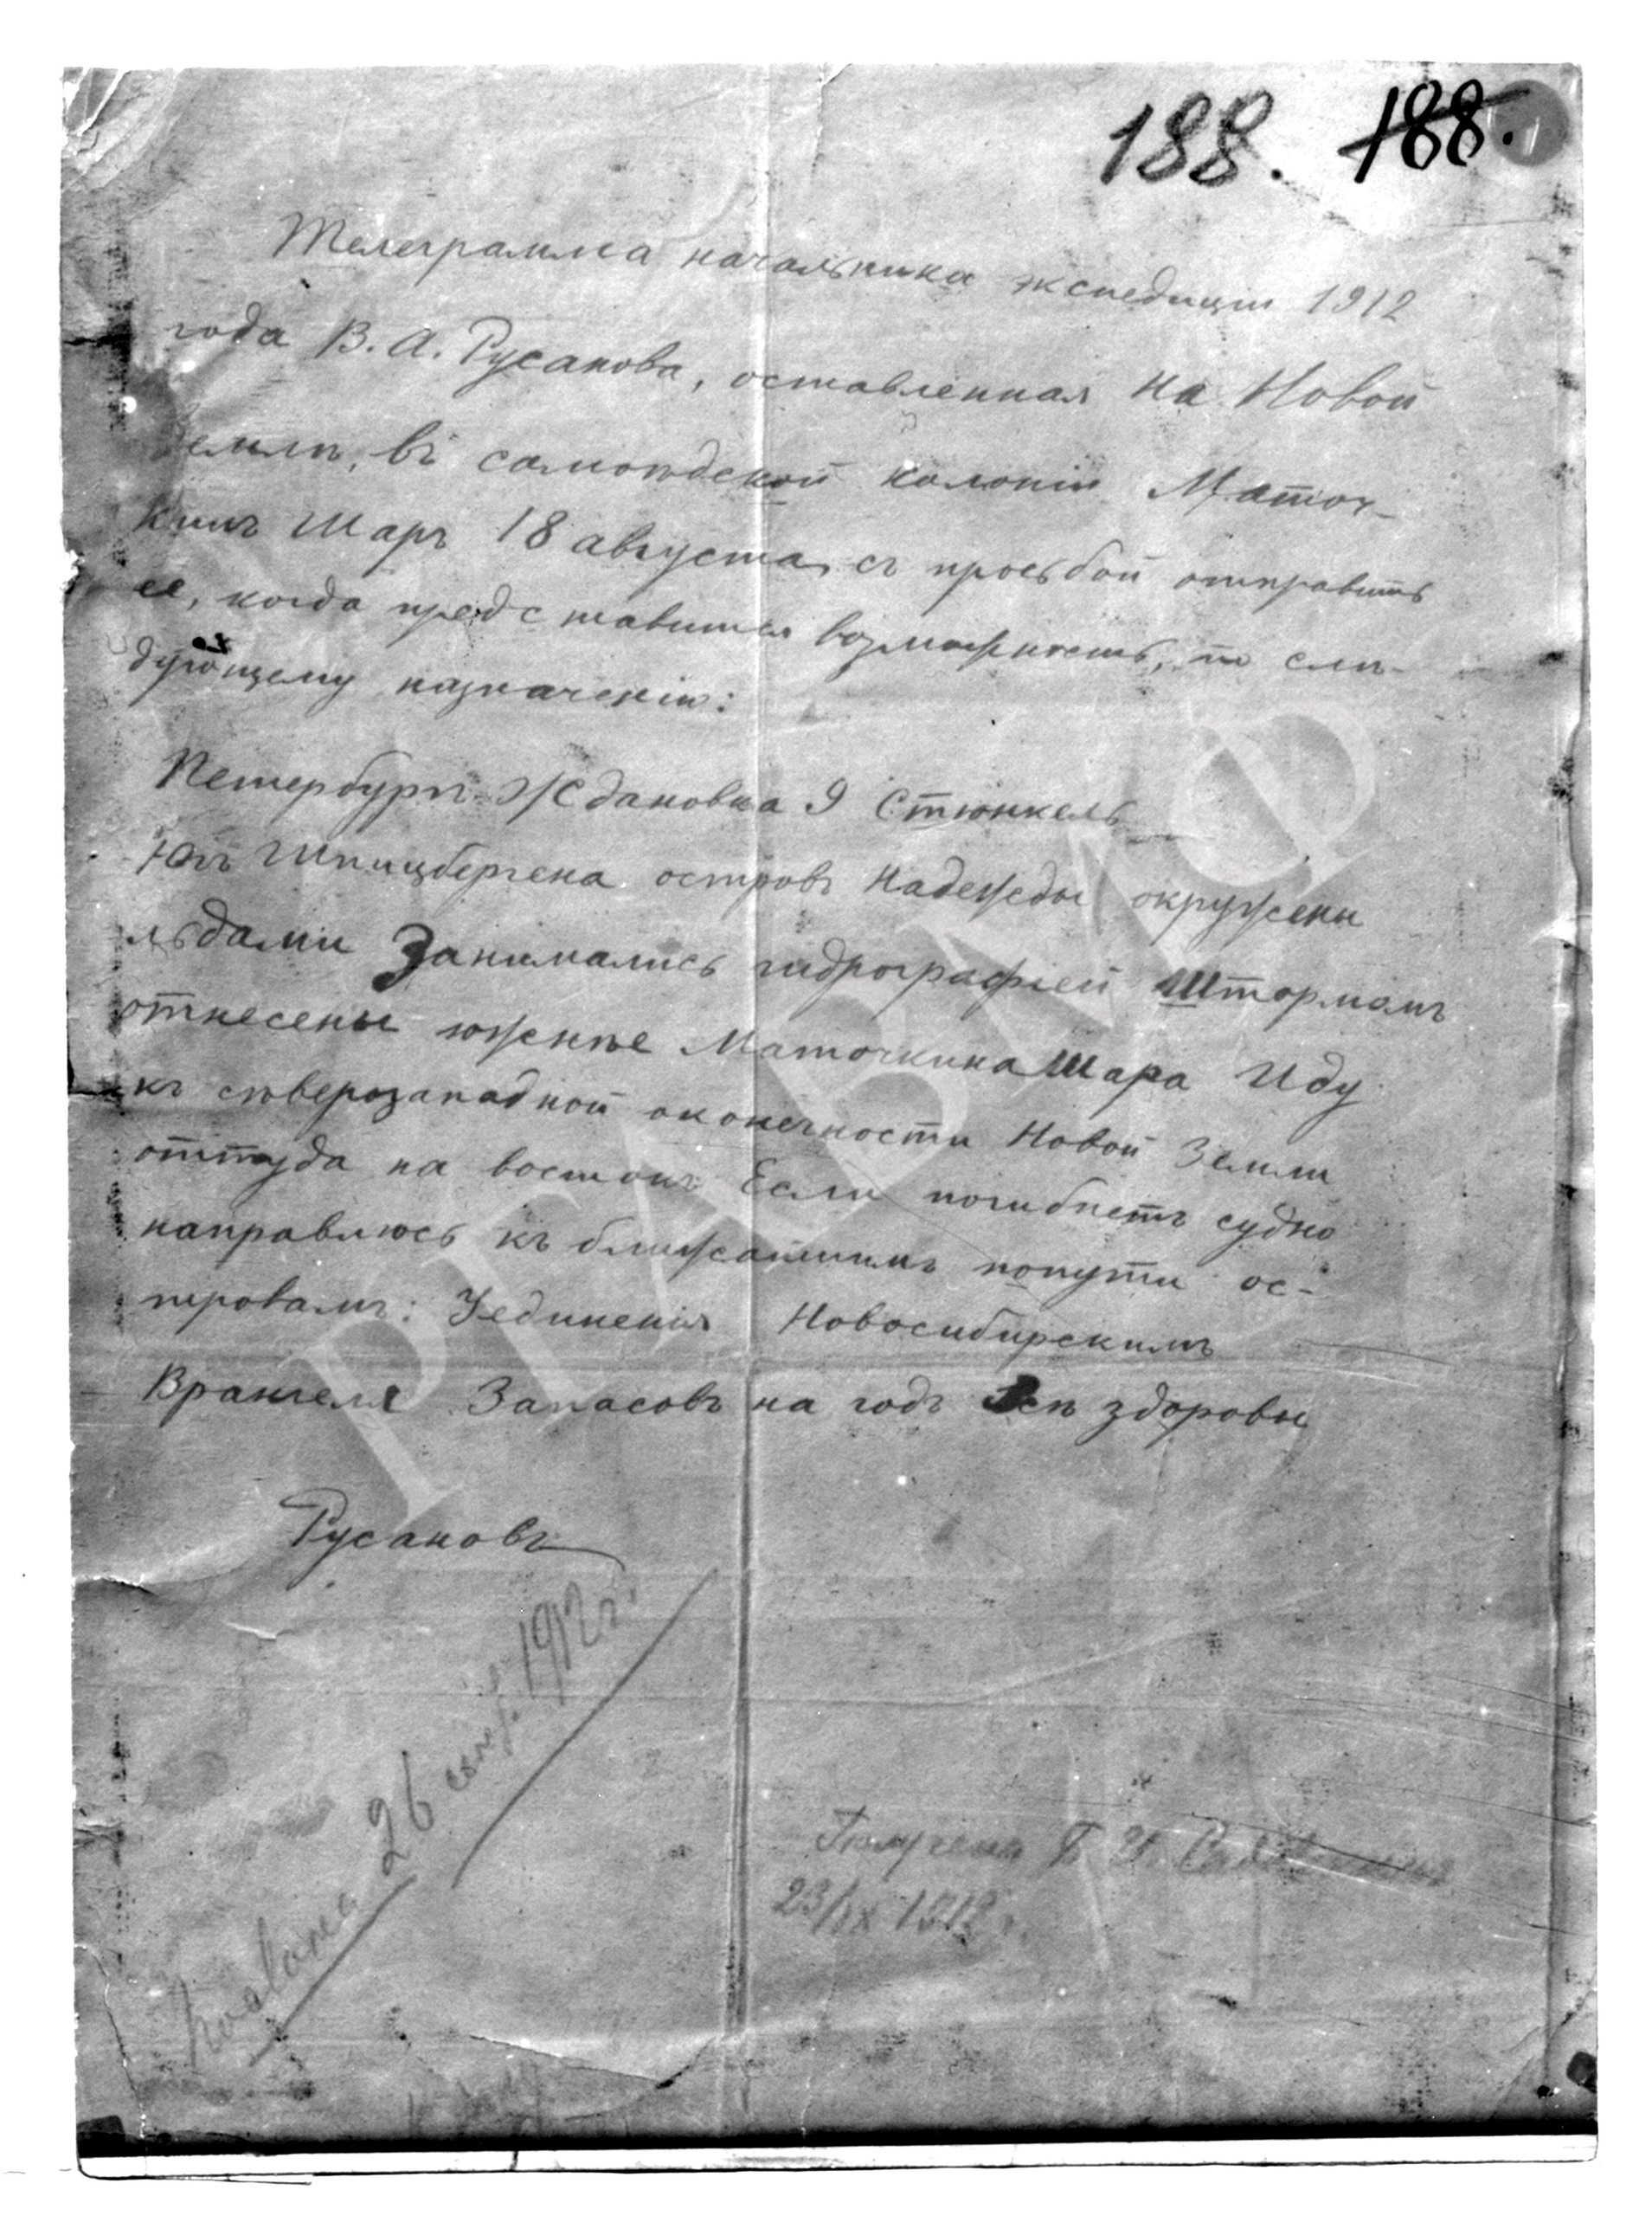 188. 188.
Телеграмма начальника экспедиціи 1912
года В. А. Русанова, оставленная на Новой
Землѣ, въ самоѣдской колоніи Маточ-
кинъ Шаръ 18 августа, съ просьбой отправить
ее, когда представится возможность, по слѣ-
дующему назначенію:
Петербургъ Ждановка 9 Стюнкель
Югъ Шпицбергена островъ Надежды окружены
льдами Занимались гидрографіей Штормомъ
отнесены южнѣе Маточкина Шара Иду
къ сѣверозападной оконечности Новой Земли
оттуда на востокъ Если погибнетъ судно
направлюсь къ ближайшимъ попути ос-
тровамъ: Уединенія Новосибирскимъ
Врангеля Запасовъ на годъ Всѣ здоровы
Русановъ
26 сент. 1912 г.
Получена
23/IX 1912 г.
РГАВМФ